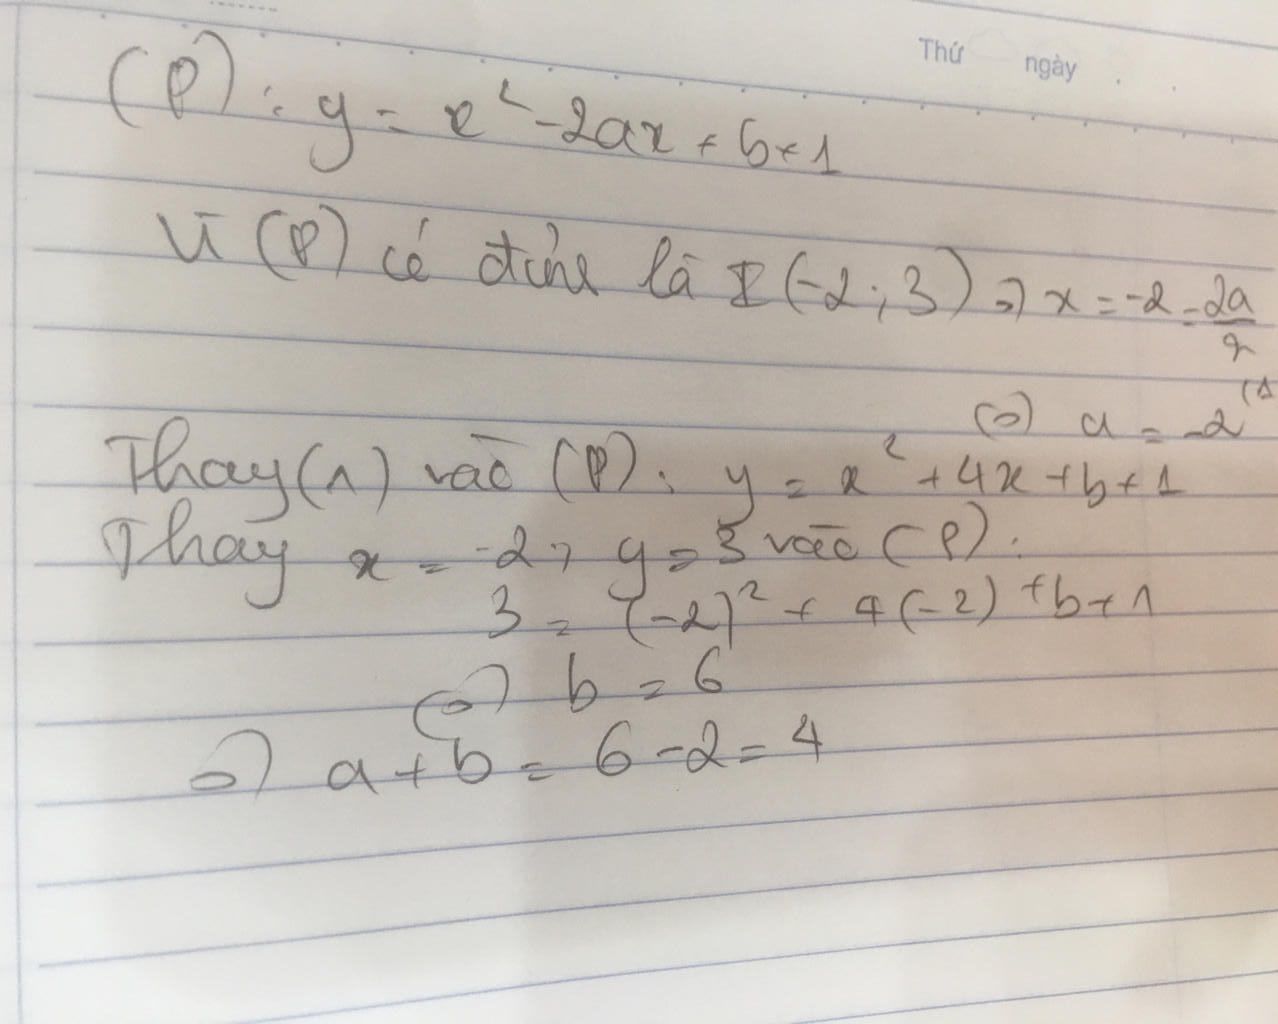 Thứ ngày
(P) : y = x² - 2ax + b + 1
Vì (P) có đỉnh là I (-2 ; 3) => x = -2 = 2a/2
(=) a = -2 (1
Thay (1) vào (P) : y = x² + 4x + b + 1
Thay x = -2 , y = 3 vào (P) :
3 = (-2)² + 4(-2) + b + 1
(=) b = 6
=) a + b = 6 - 2 = 4